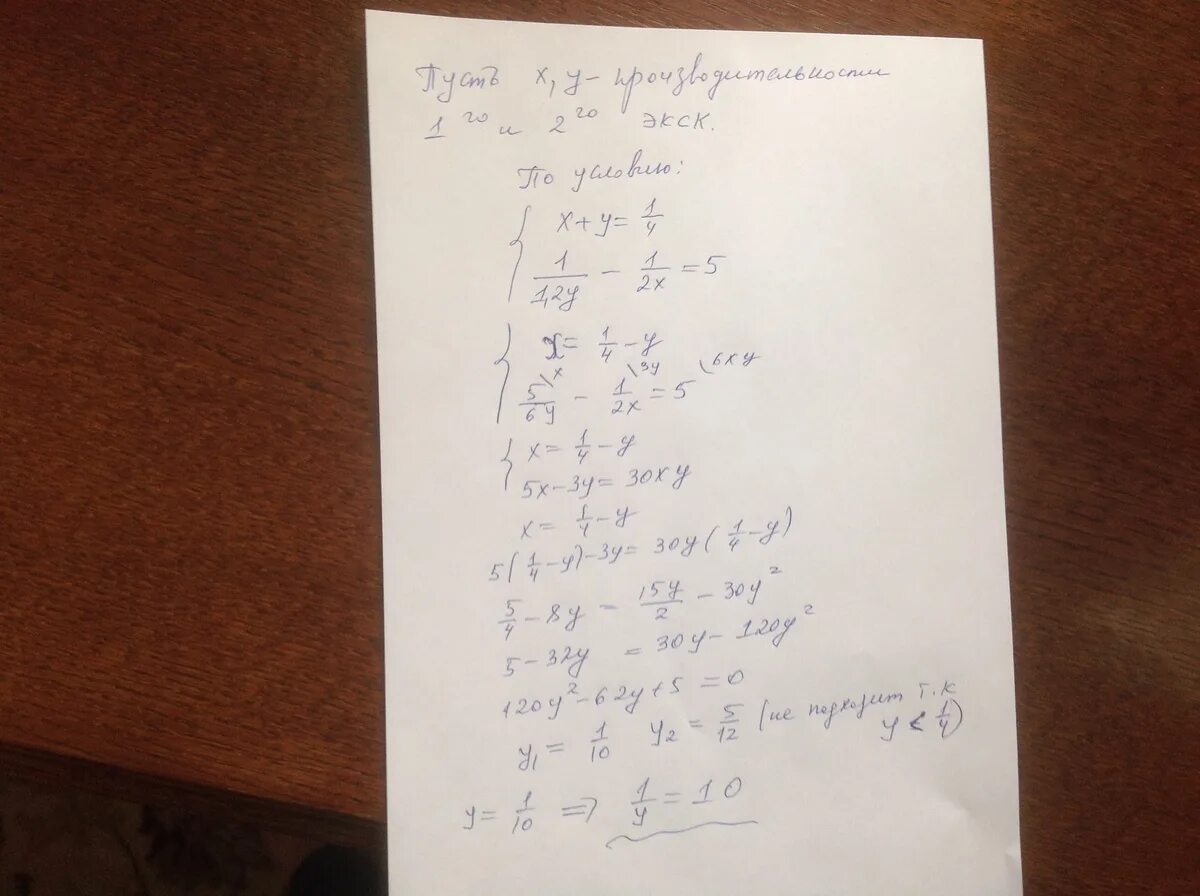 Пусть x, y - производительности
1го и 2го экск.
По условию:
{ x + y = 1/4
1/1,2y - 1/2x = 5
{ x = 1/4 - y
5/6y \x - 1/2x \3y = 5 \6xy
{ x = 1/4 - y
5x - 3y = 30xy
x = 1/4 - y
5(1/4 - y) - 3y = 30y(1/4 - y)
5/4 - 8y = 15y/2 - 30y²
5 - 32y = 30y - 120y²
120y² - 62y + 5 = 0
y₁ = 1/10 y₂ = 5/12 (не подходит т.к
y < 1/4)
y = 1/10 => 1/y = 10